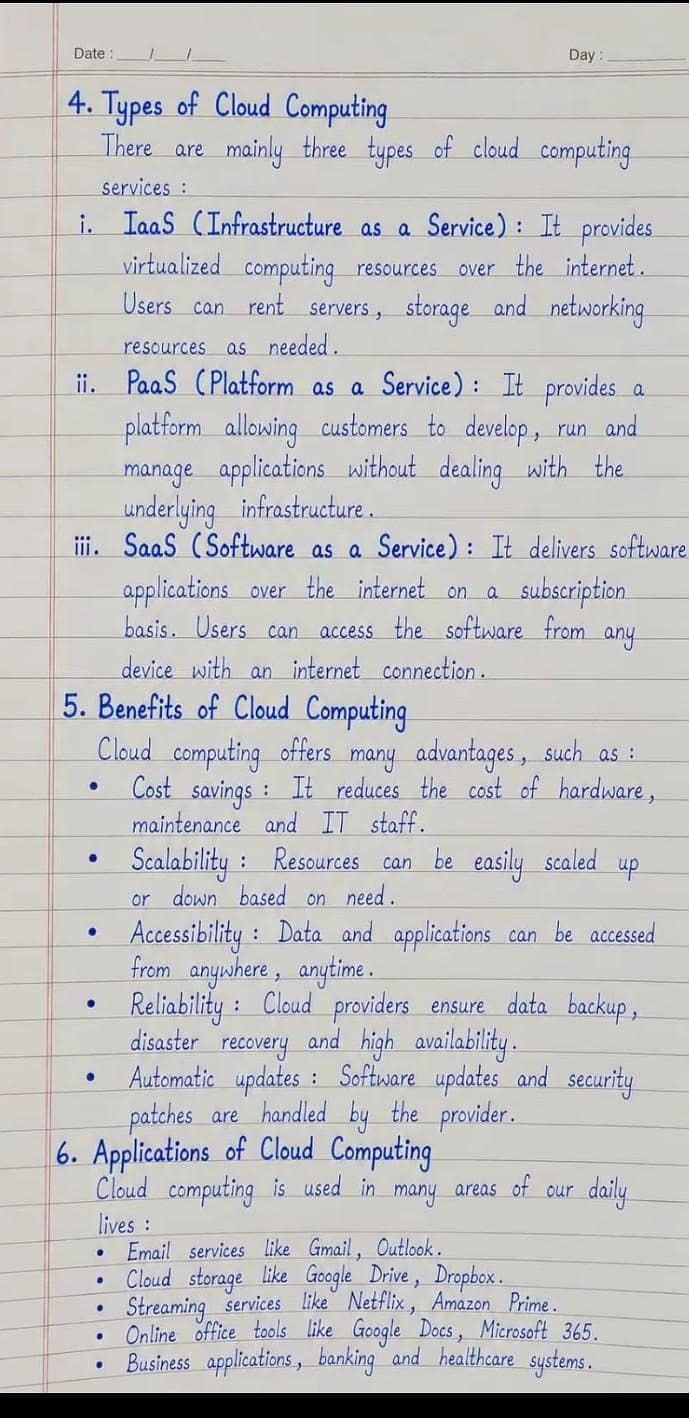 Date : ___/___/___ Day : ________
4. Types of Cloud Computing
There are mainly three types of cloud computing
services :
i. IaaS (Infrastructure as a Service) : It provides
virtualized computing resources over the internet.
Users can rent servers, storage and networking
resources as needed.
ii. PaaS (Platform as a Service) : It provides a
platform allowing customers to develop, run and
manage applications without dealing with the
underlying infrastructure.
iii. SaaS (Software as a Service) : It delivers software
applications over the internet on a subscription
basis. Users can access the software from any
device with an internet connection.
5. Benefits of Cloud Computing
Cloud computing offers many advantages, such as :
• Cost savings : It reduces the cost of hardware,
maintenance and IT staff.
• Scalability : Resources can be easily scaled up
or down based on need.
• Accessibility : Data and applications can be accessed
from anywhere, anytime.
• Reliability : Cloud providers ensure data backup,
disaster recovery and high availability.
• Automatic updates : Software updates and security
patches are handled by the provider.
6. Applications of Cloud Computing
Cloud computing is used in many areas of our daily
lives :
• Email services like Gmail, Outlook.
• Cloud storage like Google Drive, Dropbox.
• Streaming services like Netflix, Amazon Prime.
• Online office tools like Google Docs, Microsoft 365.
• Business applications, banking and healthcare systems.